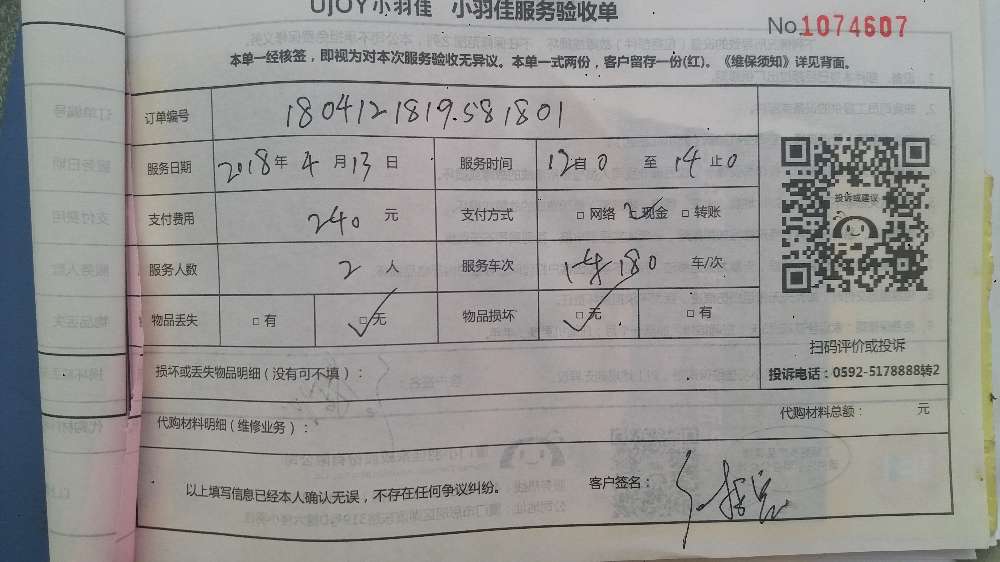 UJOY小羽佳 小羽佳服务验收单
No.1074607
本单一经核签，即视为对本次服务验收无异议。本单一式两份，客户留存一份(红)。《维保须知》详见背面。
订单编号 1804121819.581801
服务日期 2018年4月13日 服务时间 12自0至14止0
支付费用 240元 支付方式 □网络 ☑现金 □转账
服务人数 2人 服务车次 180 车/次
物品丢失 □有 ☑无 物品损坏 ☑无 □有
投诉或建议
扫码评价或投诉
投诉电话：0592-5178888转2
损坏或丢失物品明细（没有可不填）：
代购材料明细（维修业务）： 代购材料总额： 元
以上填写信息已经本人确认无误，不存在任何争议纠纷。 客户签名：